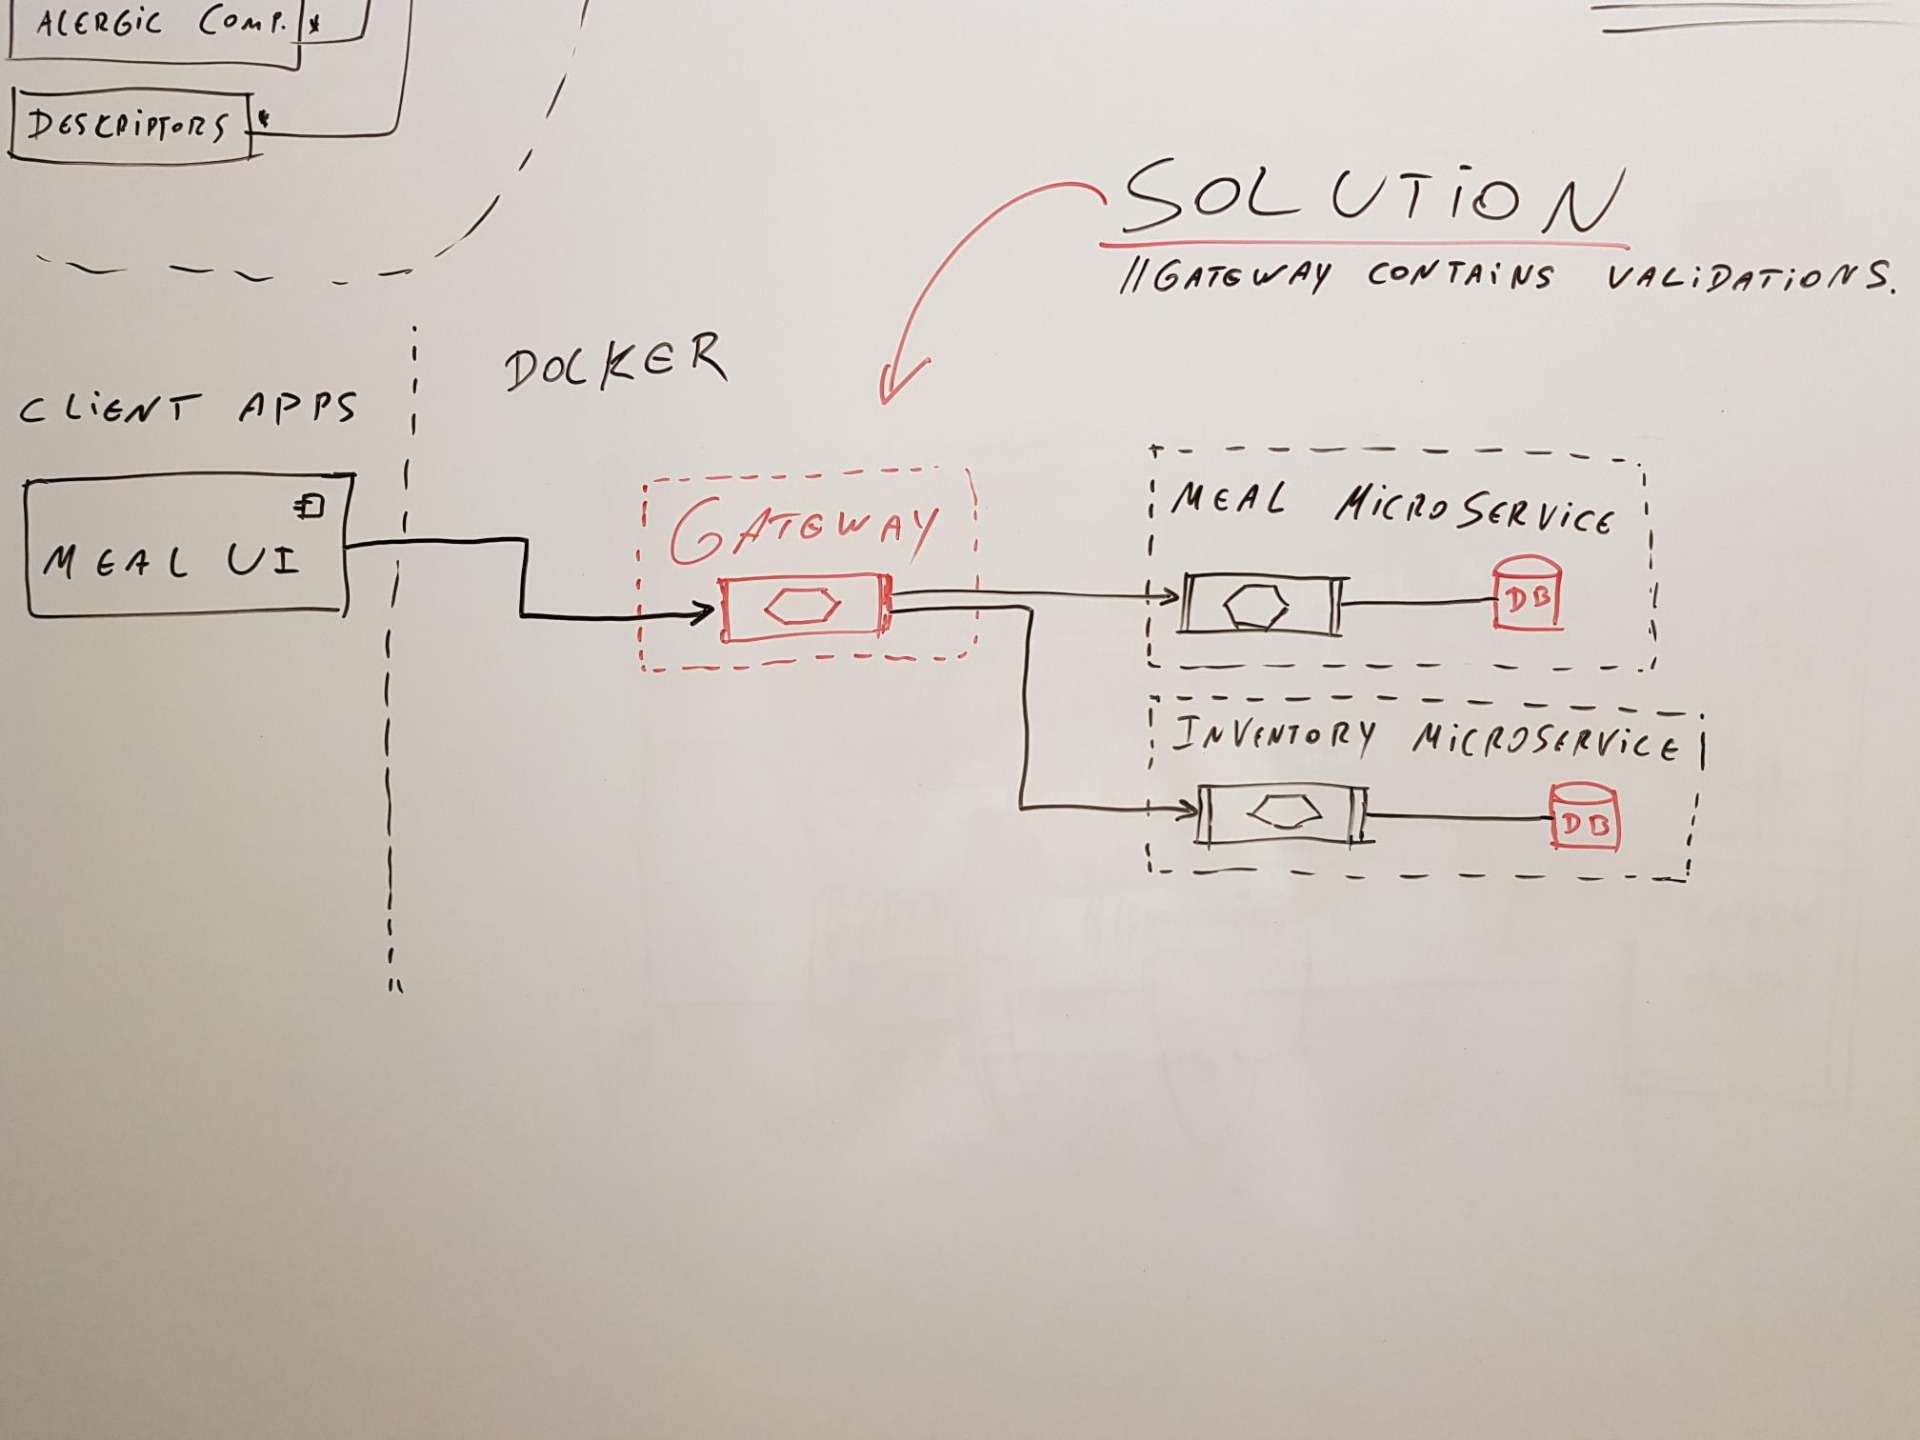 ALERGiC COMP. *
DESKRiPTORS *
SOLUTiON
//GATEWAY CONTAiNS VALiDATiONS.
DOCKER
CLiENT APPS
MEAL UI
GATEWAY
MEAL MiCROSERViCE
DB
INVENTORY MiCROSERViCE
DB